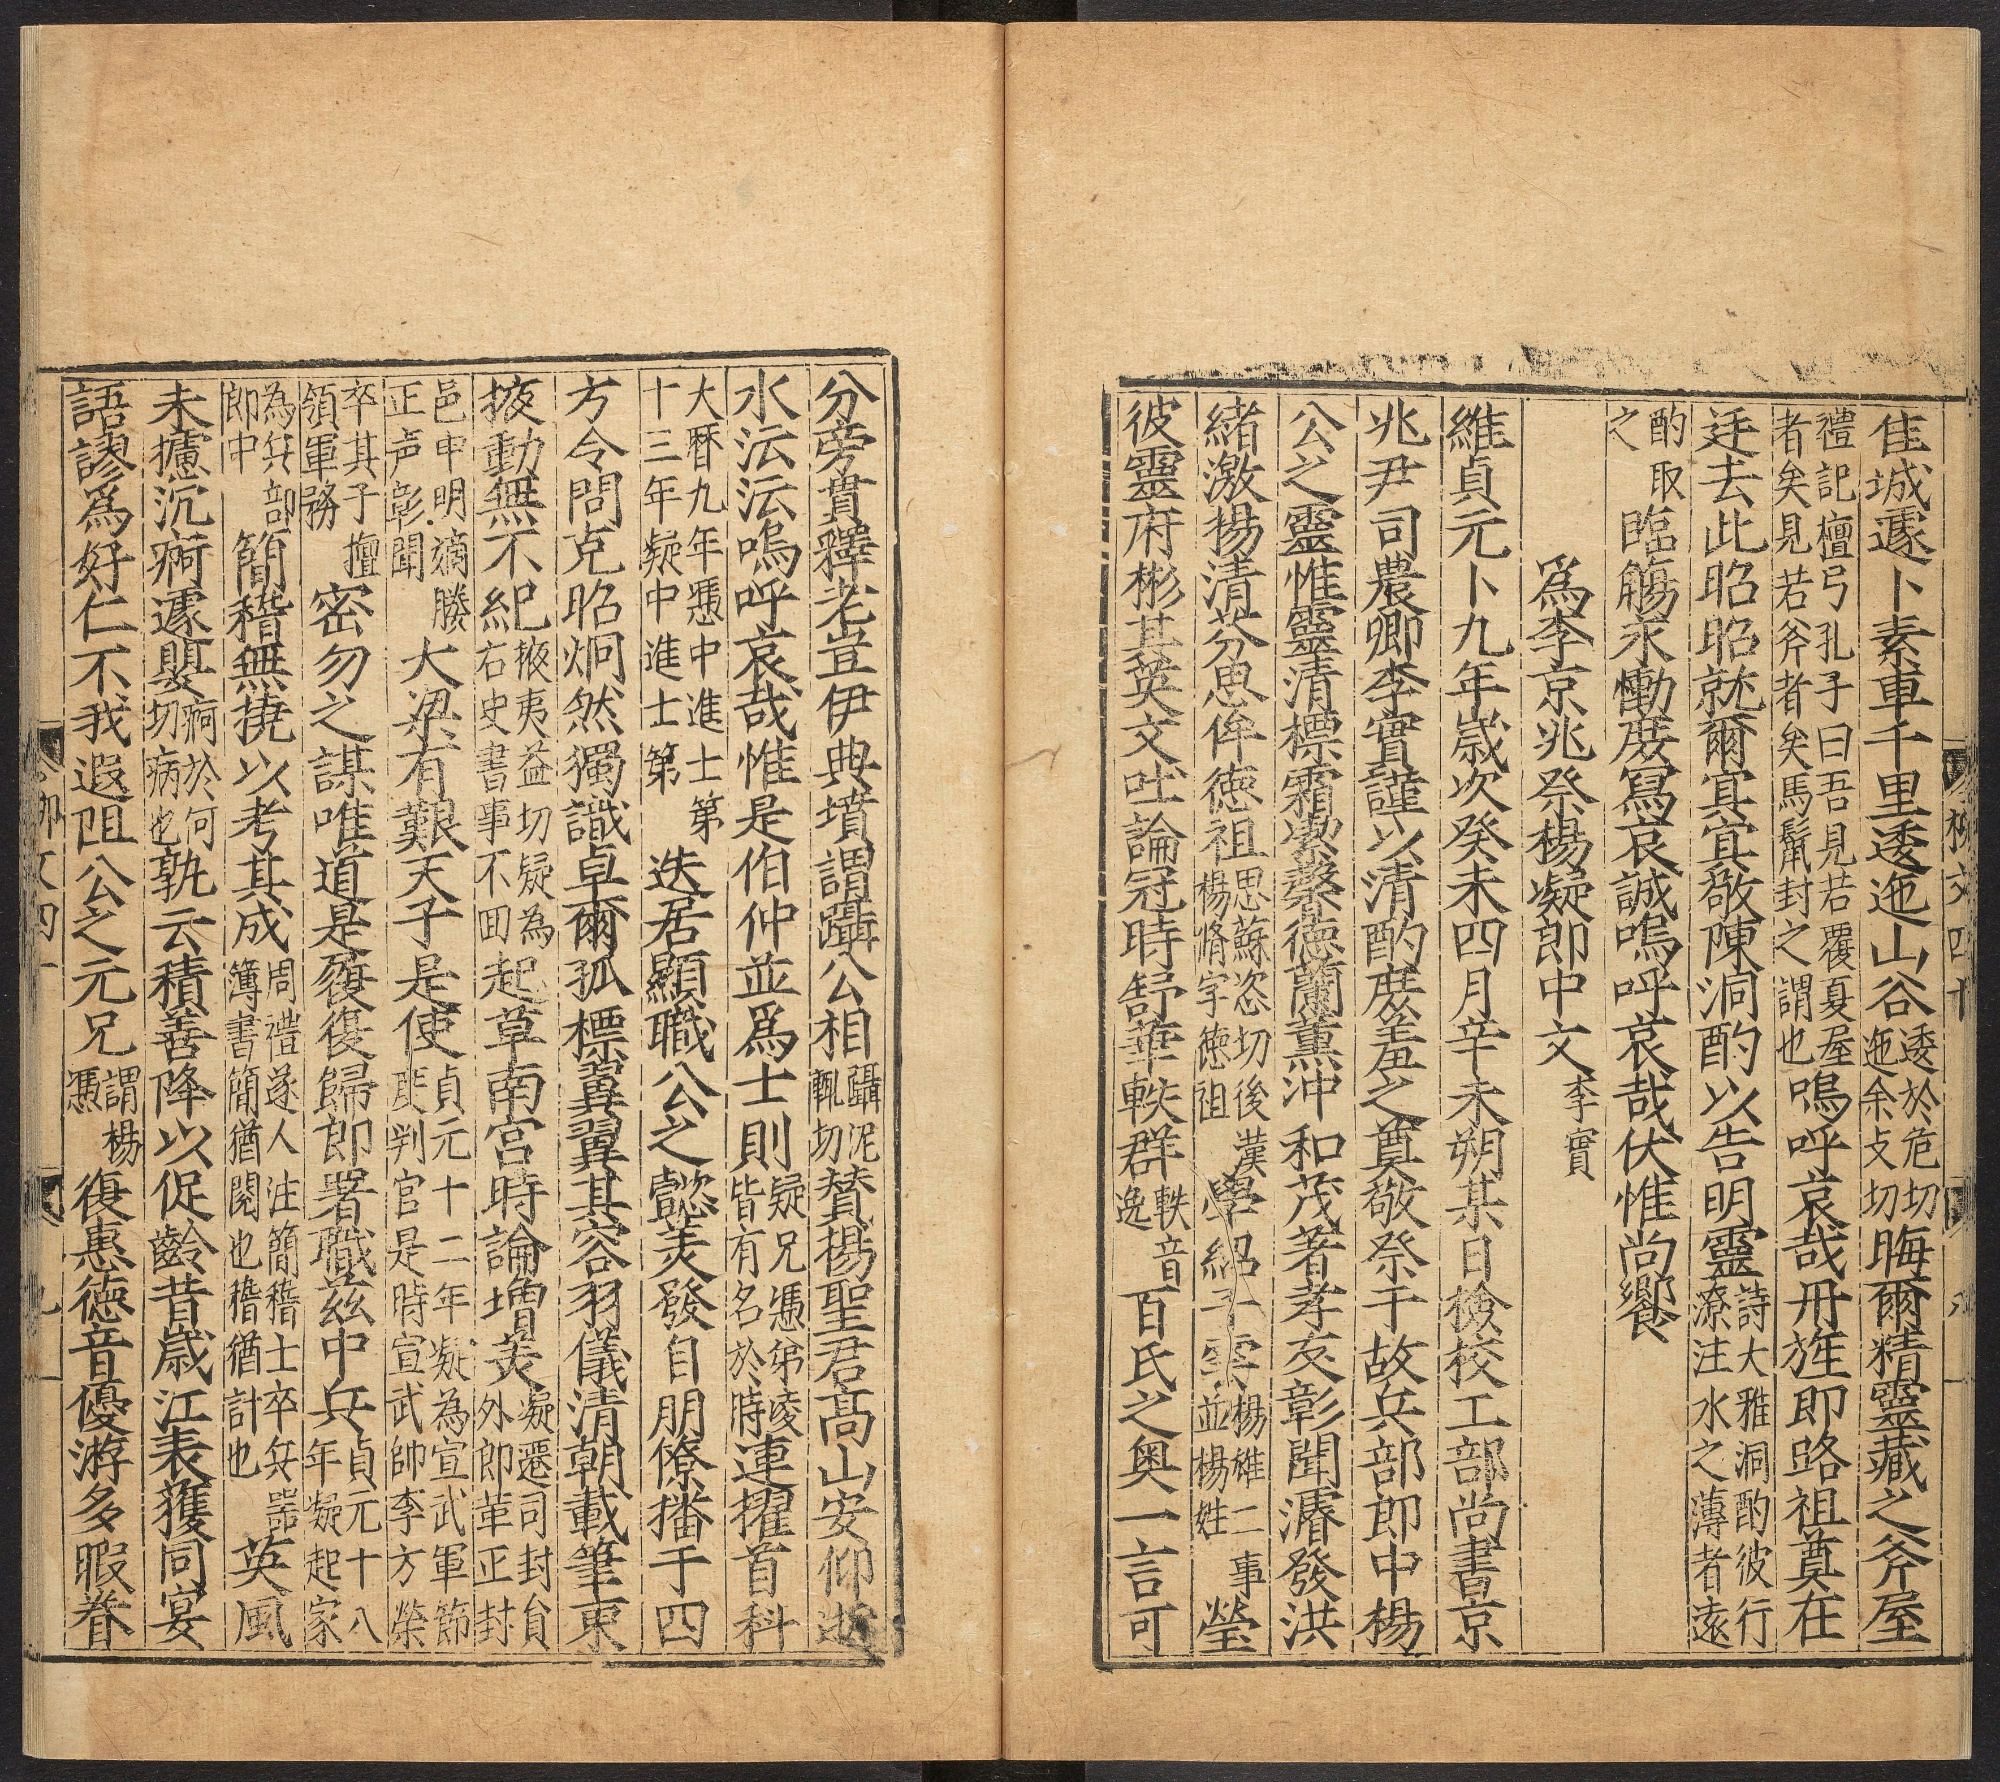 佳城遽卜素車千里逶迤山谷逶於危切迤余支切晦爾精靈藏之斧屋
禮記檀弓孔子曰吾見若覆夏屋者矣見若斧者矣馬鬛封之謂也嗚呼哀哉丹旌即路祖奠在
廷去此昭昭就爾冥冥敬陳泂酌以告明靈詩大雅泂酌彼行潦注水之薄者遠
酌取之臨觴永慟庶寫哀誠嗚呼哀哉伏惟尚饗
爲李京兆祭楊凝郎中文李實
維貞元卜九年歲次癸未四月辛未朔某日檢校工部尚書京
兆尹司農卿李實謹以清酌庶羞之奠敬祭于故兵部郎中楊
公之靈惟靈清標霜潔馨德蘭薰沖和茂著孝友彰聞濬發洪
緒激揚清芬思侔德祖思蘇恣切後漢楊脩字德祖學紹子雲楊雄二事並楊姓瑩
彼靈府彬其英文吐論冠時舒華軼群軼音逸百氏之奧一言可
柳文四十
八
分旁貫釋老豈伊典墳謂躡公相躡泥輒切贊揚聖君高山安仰逝
水沄沄嗚呼哀哉惟是伯仲並爲士則凝兄憑弟凌皆有名於時連擢首科
大曆九年憑中進士第十三年凝中進士第迭居顯職公之懿美發自朋僚播于四
方令問克昭炯然獨識卓爾孤標翼翼其容羽儀清朝載筆東
掖動無不紀掖夷益切凝為右史書事不回起草南宮時論增美凝遷司封員外郎革正封
邑申明嫡媵正声彰聞大梁有艱天子是使貞元十二年凝為宣武軍節度判官是時宣武帥李万榮
卒其子擅領軍務密勿之謀唯道是履復歸郎署職茲中兵貞元十八年凝起家
為兵部郎中簡稽無撓以考其成周禮遂人注簡稽士卒兵器簿書簡猶閱也稽猶計也英風
未攄沉痾遽嬰痾於何切病也孰云積善降以促齡昔歲江表獲同宴
語謬爲好仁不我遐阻公之元兄謂楊憑復惠德音優游多暇眷
柳文四十
九